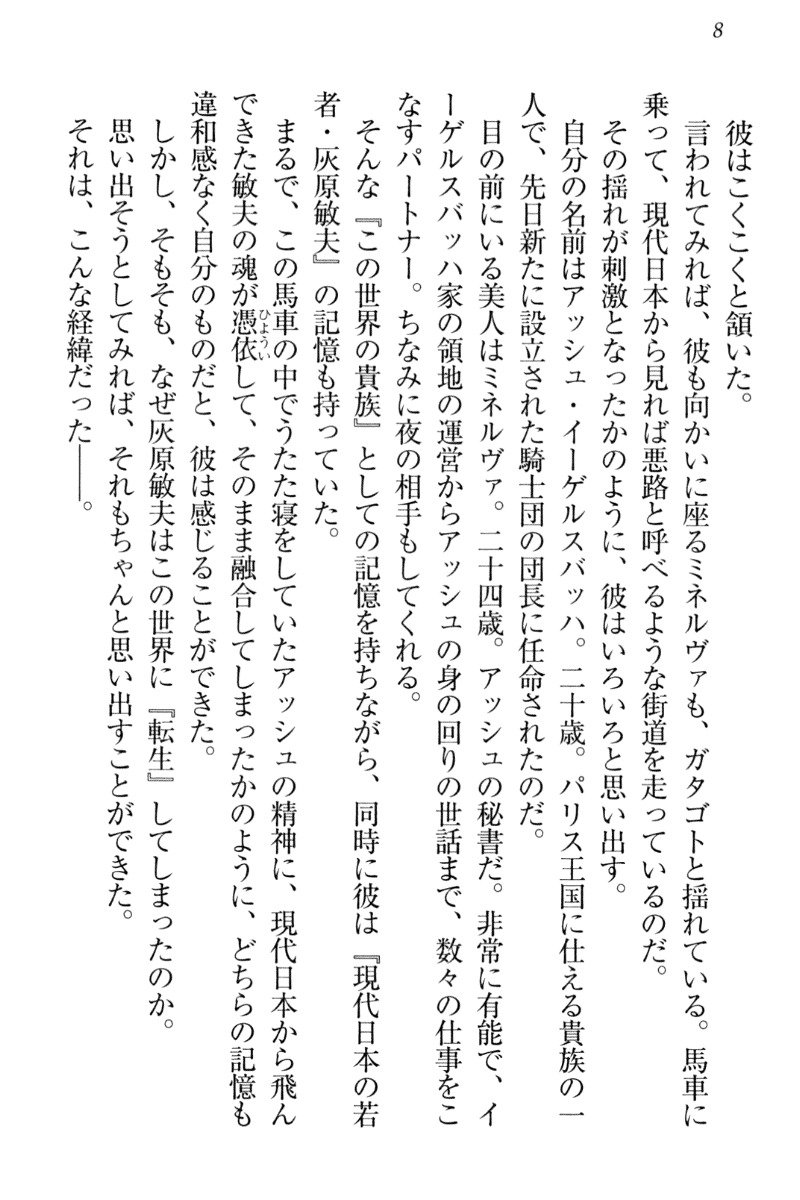 8
彼はこくこくと頷いた。
言われてみれば、彼も向かいに座るミネルヴァも、ガタゴトと揺れている。馬車に
乗って、現代日本から見れば悪路と呼べるような街道を走っているのだ。
その揺れが刺激となったかのように、彼はいろいろと思い出す。
自分の名前はアッシュ・イーゲルスバッハ。二十歳。パリス王国に仕える貴族の一
人で、先日新たに設立された騎士団の団長に任命されたのだ。
目の前にいる美人はミネルヴァ。二十四歳。アッシュの秘書だ。非常に有能で、イ
ーゲルスバッハ家の領地の運営からアッシュの身の回りの世話まで、数々の仕事をこ
なすパートナー。ちなみに夜の相手もしてくれる。
そんな『この世界の貴族』としての記憶を持ちながら、同時に彼は『現代日本の若
者・灰原敏夫』の記憶も持っていた。
まるで、この馬車の中でうたた寝をしていたアッシュの精神に、現代日本から飛ん
できた敏夫の魂が憑依ひょういして、そのまま融合してしまったかのように、どちらの記憶も
違和感なく自分のものだと、彼は感じることができた。
しかし、そもそも、なぜ灰原敏夫はこの世界に『転生』してしまったのか。
思い出そうとしてみれば、それもちゃんと思い出すことができた。
それは、こんな経緯だった――。